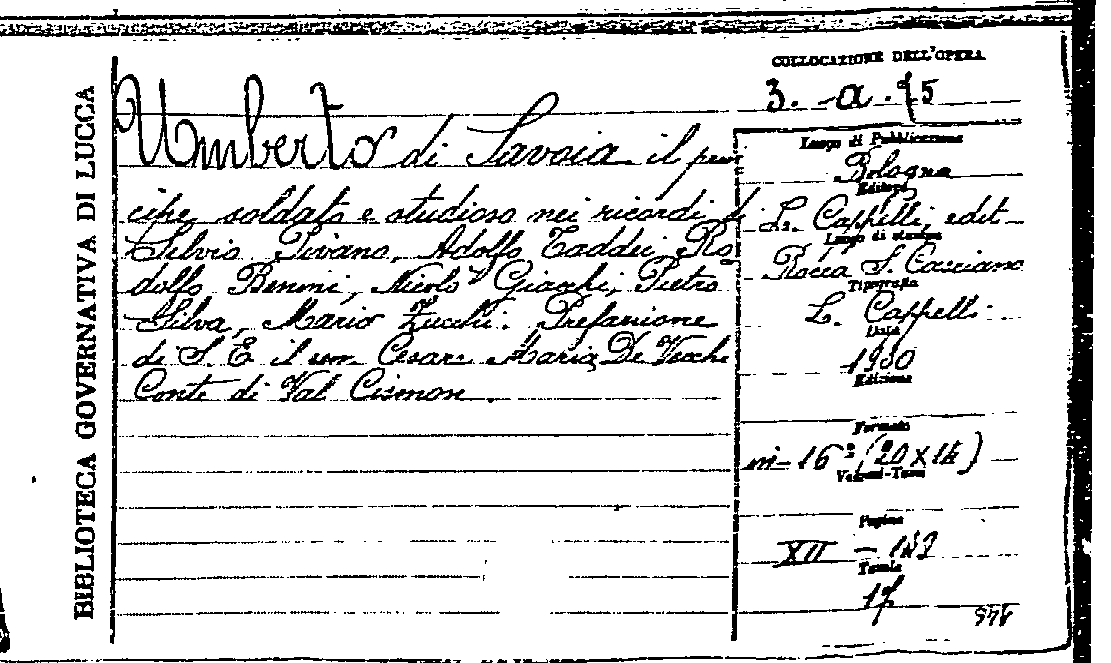 BIBLIOTECA GOVERNATIVA DI LUCCA
COLLOCAZIONE DELL'OPERA
3. - a. 75
Umberto di Savoia il prin
cipe soldato e studioso nei ricordi di
Silvio Pivano, Adolfo Taddei, Ro
dolfo Benini, Nicolò Giacchi, Pietro
Silva, Mario Zucchi. Prefazione
di S. E. il con Cesare Maria De Vecchi
Conte di Val Cismon.
Luogo di Pubblicazione
Bologna
Editore
L. Cappelli, edit
Luogo di stampa
Rocca S. Casciano
Tipografia
L. Cappelli
Data
1930
Edizione
Formato
in-16° (20 x 14)
Volumi-Tomi
Pagine
XII -
Tavole
17